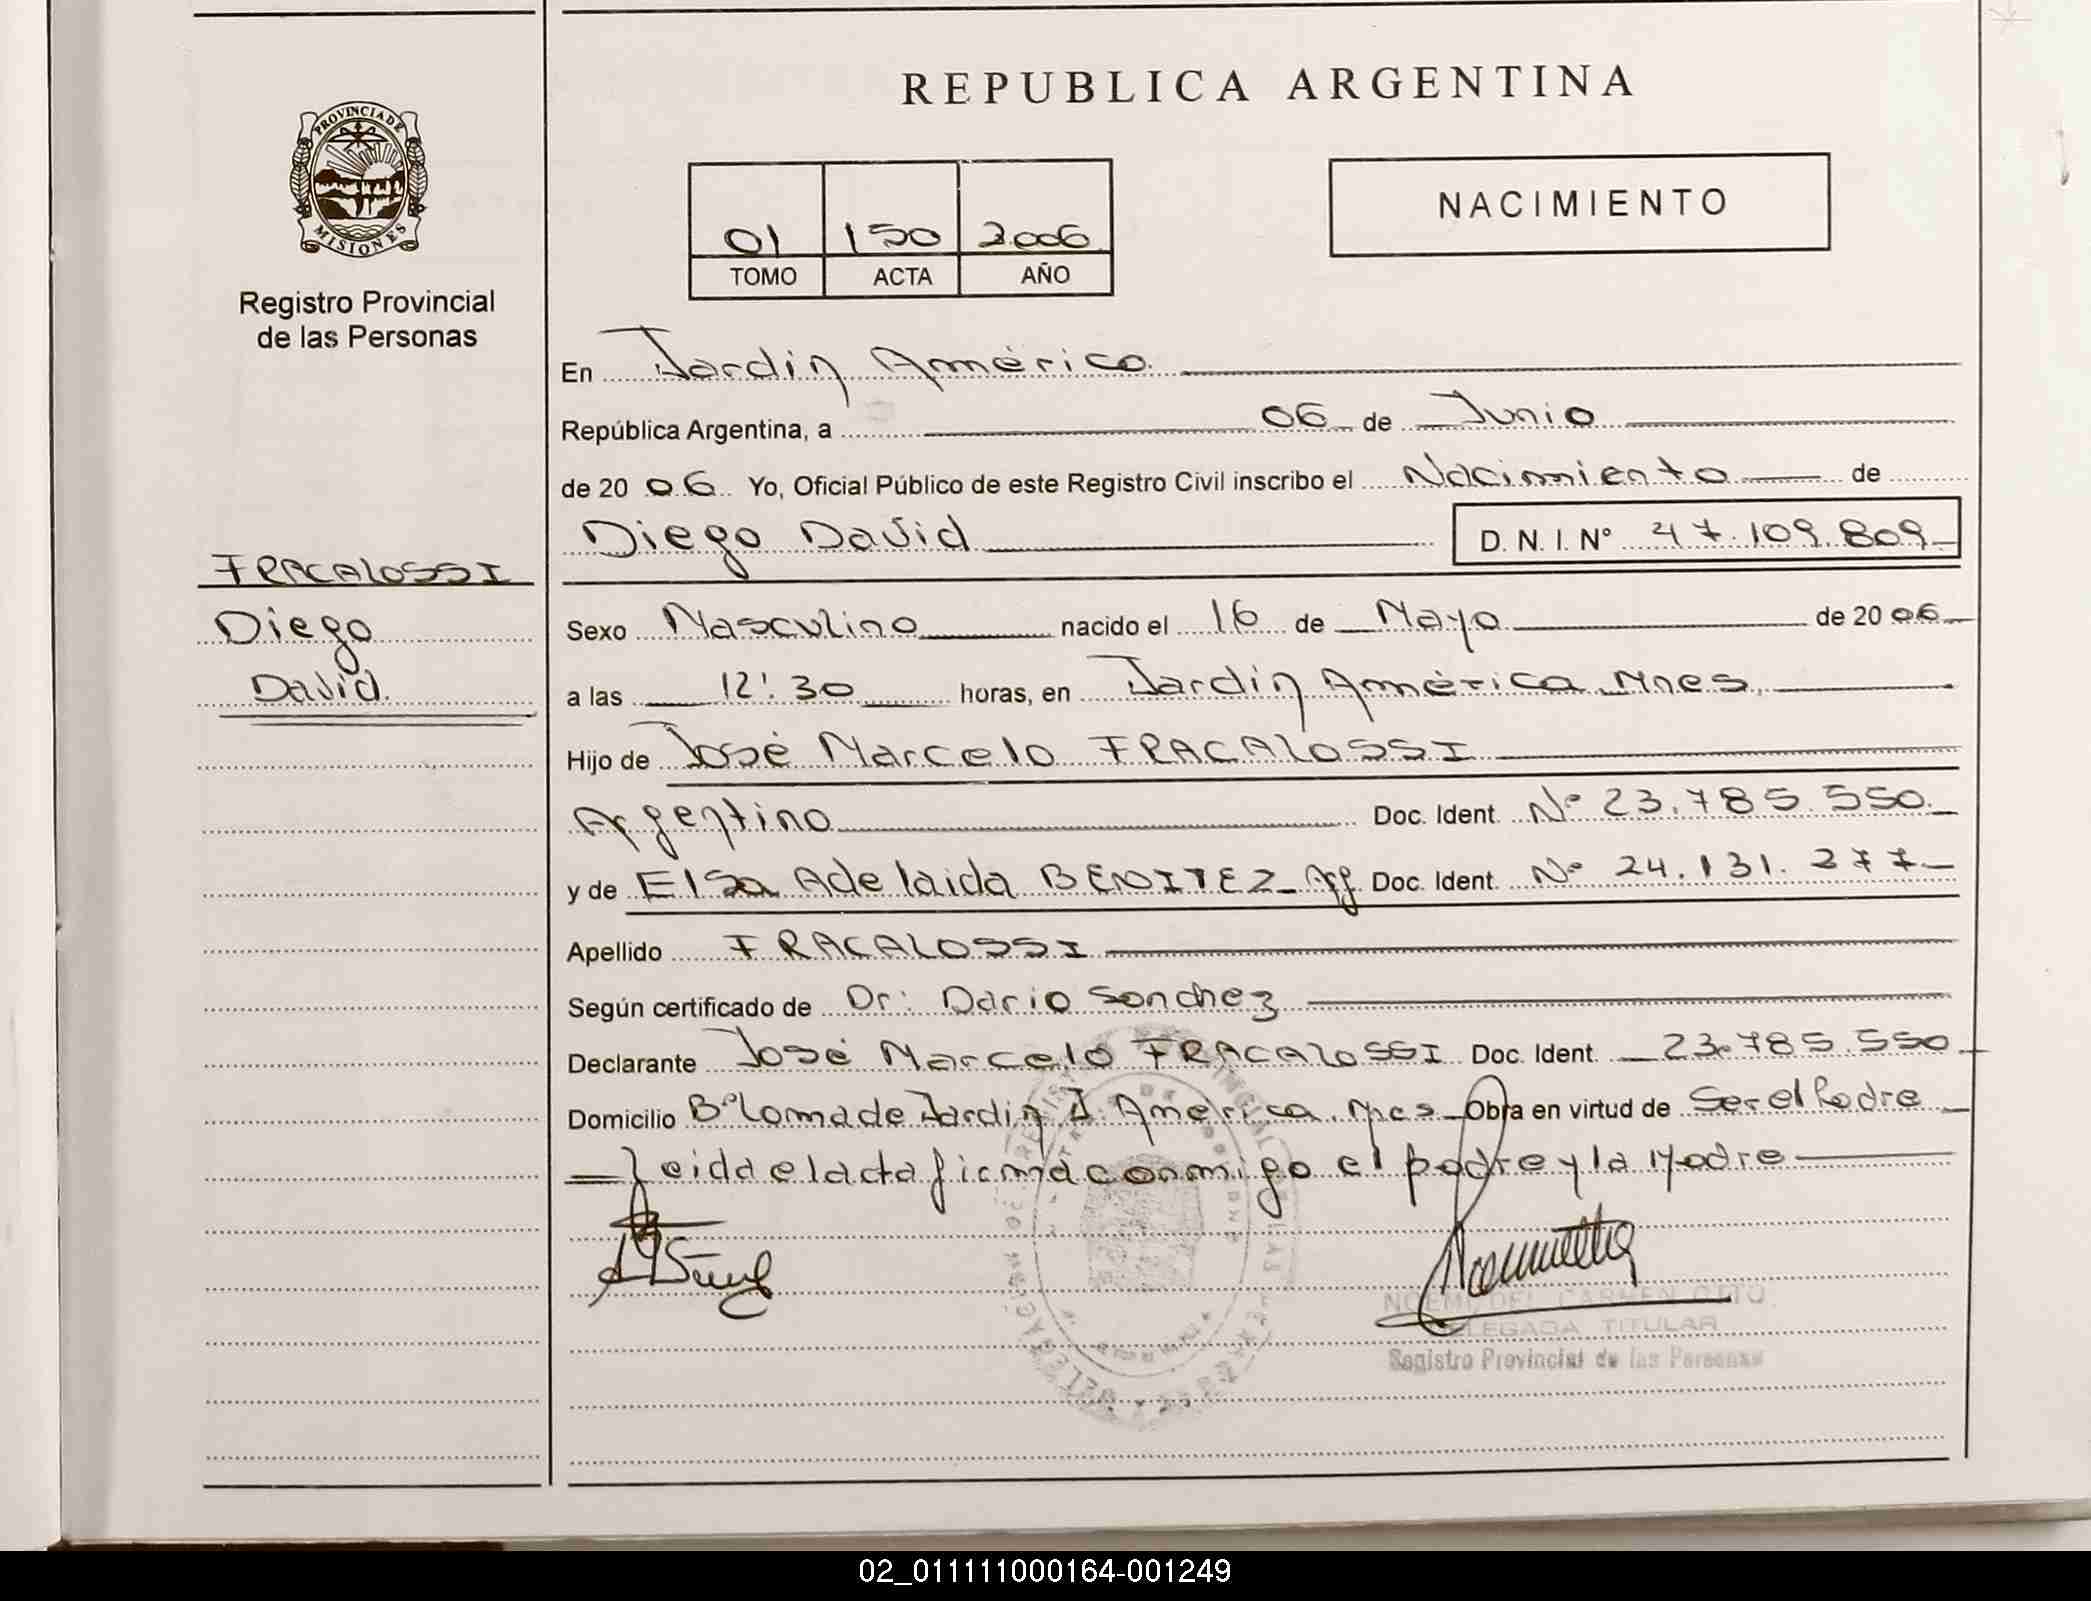 REPUBLICA ARGENTINA
PROVINCIA DE
MISIONES
Registro Provincial
de las Personas
NACIMIENTO
01 150 2006
TOMO ACTA AÑO
En Jardin América
República Argentina, a 06 de Junio
de 2006 Yo, Oficial Público de este Registro Civil inscribo el Nacimiento de
Diego David D. N. I. Nº 47.109.809
FRACALOSSI
Diego
David.
Sexo Masculino nacido el 16 de Mayo de 2006
a las 12:30 horas, en Jardin América Mnes,
Hijo de José Marcelo FRACALOSSI
Argentino Doc. Ident. Nº 23.785.550
y de Elsa Adelaida BENITEZ Arg Doc. Ident. Nº 24.131.277
Apellido FRACALOSSI
Según certificado de Dr: Dario Sanchez
Declarante José Marcelo FRACALOSSI Doc. Ident. 23.785.550
Domicilio Bº Loma de Jardin J. América Mnes Obra en virtud de Ser el Padre
Leida el acta firma conmigo el padre y la Madre
NOEMI DEL CARMEN
DELEGADA TITULAR
Registro Provincial de las Personas
02_011111000164-001249